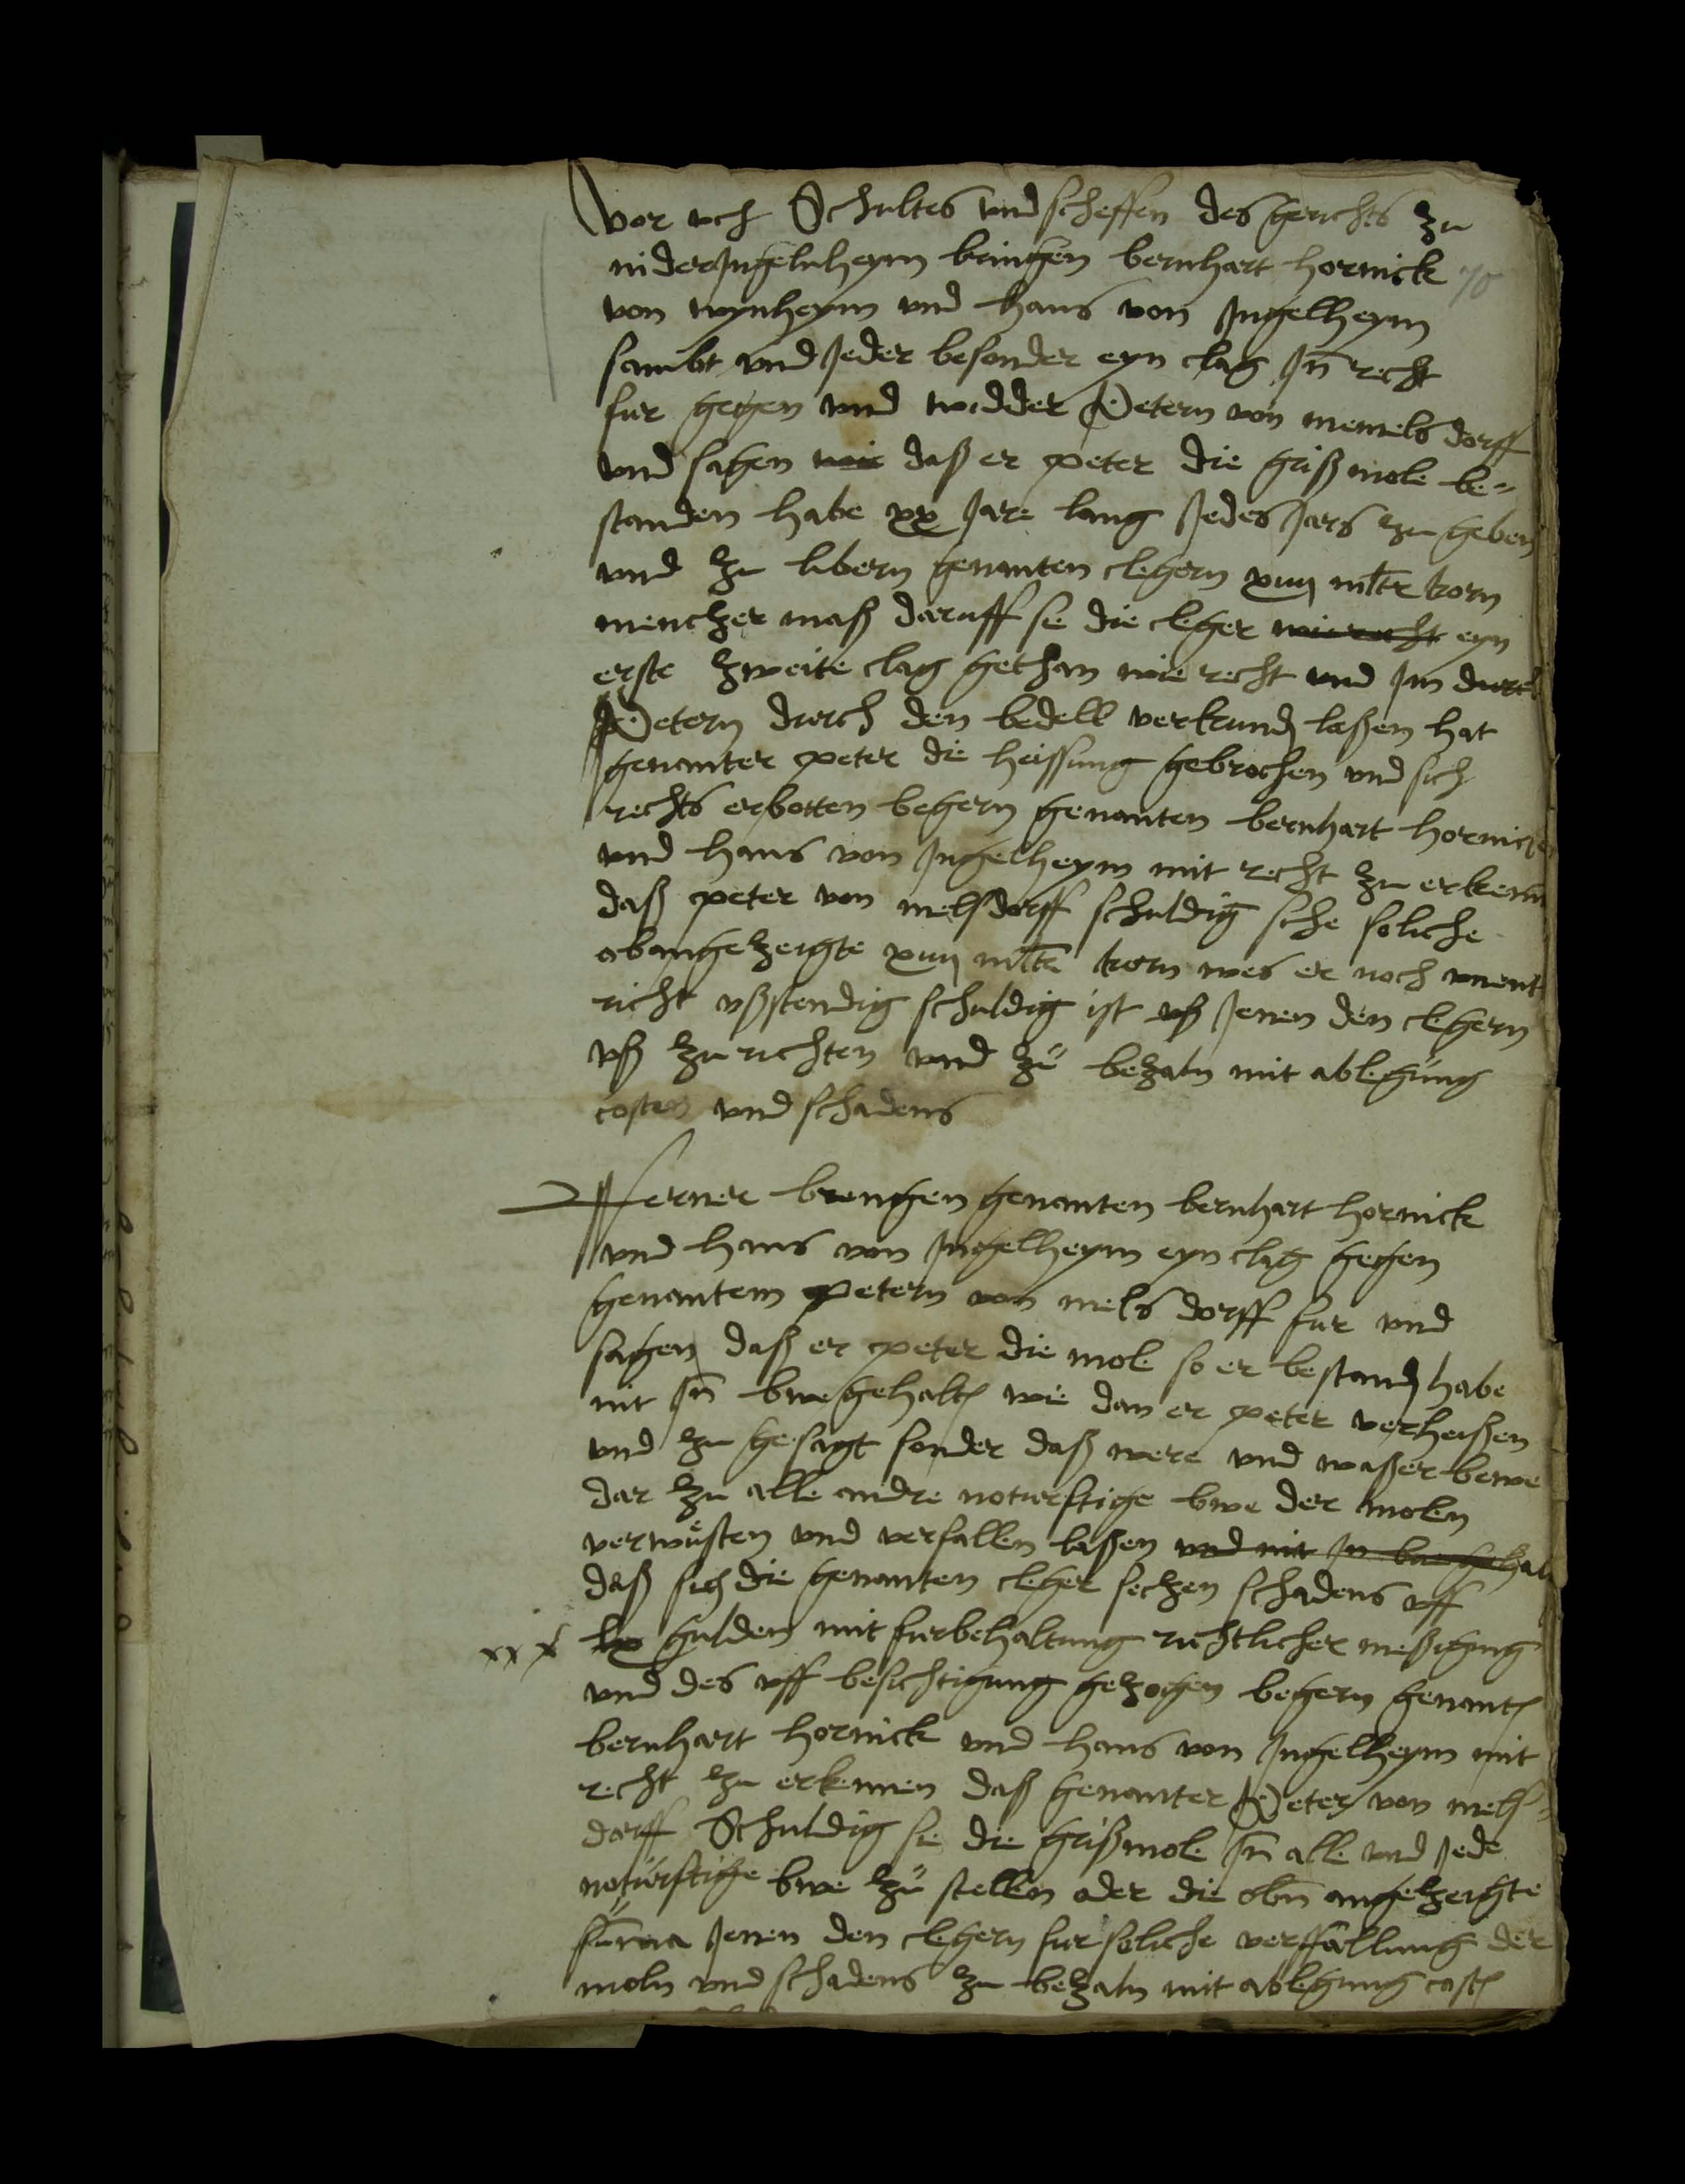 vor uch Schultes vnd scheffen des gerichts zu
niderJngelnheym bringen bernhart hornick
70
von wynheym vnd hans von Jngelheym
sambt vnd Jeder besonder eyn clag Jn recht
fur gegen vnd widder Petern von memelsdorff
vnd sagen wie daß er peter die grißmole be-
standen habe xx Jare lang Jedes Jars zu geben
vnd zu libern genanten clegern xiiij mltr korn
menczer maß daruff sie die cleger wie recht eyn
erste zweite clag gethan wie recht vnd Jm durch
Petern durch den bedell verkund laßen hat
genanter peter die heissung gebrochen vnd sich
rechts erbotten begern genanten bernhart hornick
vnd hans von Jngelheym mit recht zu erkenn
daß peter von melsdorff schuldig sihe soliche
obangezeigte xiiij mltr korn wes er noch vnent
richt vßstendig schuldig ist vß Jenen den clegern
vß zu richten vnd zu bezaln mit ablegung
costen vnd schadens
Ferner brengen genanten bernhart hornick
vnd hans von Jngelheym eyn clag gegen
genantem Petern von melsdorff fur vnd
sagen daß er peter die mole so er bestand habe
nit Jn bwe gehalt wie dan er peter verheißen
vnd zu gesagt sonder daß were vnd waßer bewe
dar zu alle andre noturftige bwe der molen
verwusten vnd verfallen laßen vnd nit Jn bwe gehalt
daß sich die genanten cleger seczen schadens vff
xxx lx gulden mit furbehaltung richtlicher meßigung
vnd des vff besichtigung gezogen begern genant
bernhart hornick vnd hans von Jngelheym mit
recht zu erkennen daß genanter Peter von mels-
dorff Schuldig sie die grißmole Jn alle vnd Jede
noturftige bwe zu stellen oder die obn angezeigte
summa Jenen den clegern fur soliche verffallung der
moln vnd schadens zu bezaln mit ablegung cost